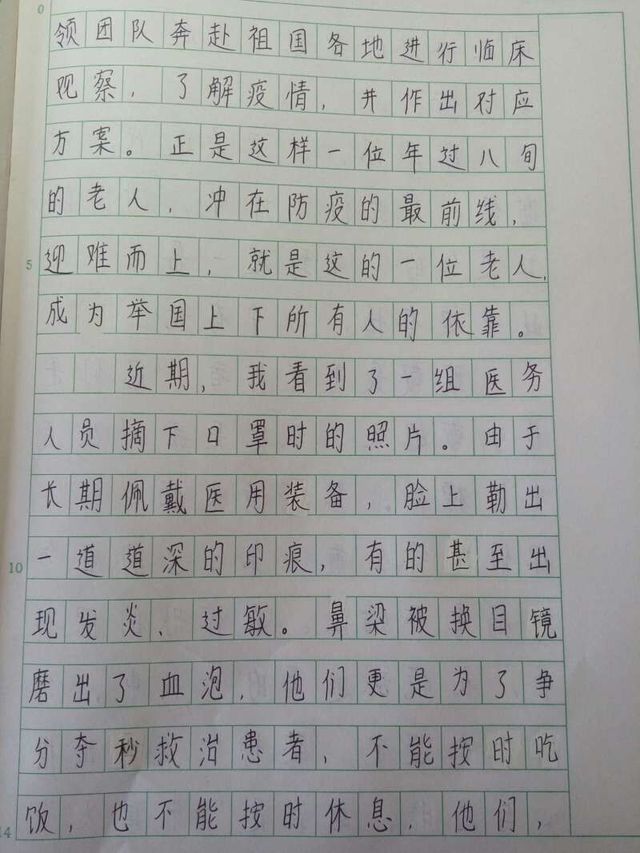 0
领团队奔赴祖国各地进行临床
观察，了解疫情，并作出对应
方案。正是这样一位年过八旬
的老人，冲在防疫的最前线，
5 迎难而上，就是这的一位老人，
成为举国上下所有人的依靠。
近期，我看到了一组医务
人员摘下口罩时的照片。由于
长期佩戴医用装备，脸上勒出
10 一道道深的印痕，有的甚至出
现发炎、过敏。鼻梁被换目镜
磨出了血泡，他们更是为了争
分夺秒救治患者，不能按时吃
14 饭，也不能按时休息，他们，